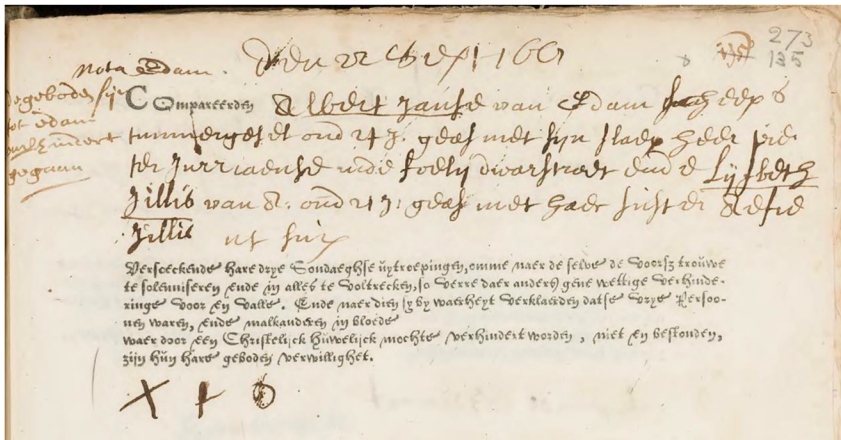 273
135
Den 22 Sept 1661
Nota Edam.
de geboden sijn
tot Edam
onverhindert
gegaan
Compareerden Albert Janse van Edam scheeps
timmergesel oud 24 J. geas met sijn slaep heer pie
ter Jurriaense inde foely dwarstraet ende Lijsbeth
Jillis van A. oud 21 J. geas met haer suster Aefie
Jillis
Versoeckende hare drye Sondaeghse uytroepingen, omme naer de selve de voorsz trouwe
te solemniseren ende in alles te voltrecken, so verre daer anders gene wettige verhinde-
ringe voor en valle. Ende naer dien sy by waerheyt verklaerden datse vrye Persoo-
nen waren, ende malkanderen in bloede
waer door een Christelijck huwelijck mochte verhindert worden, niet en bestonden,
zijn hun hare geboden verwillighet.